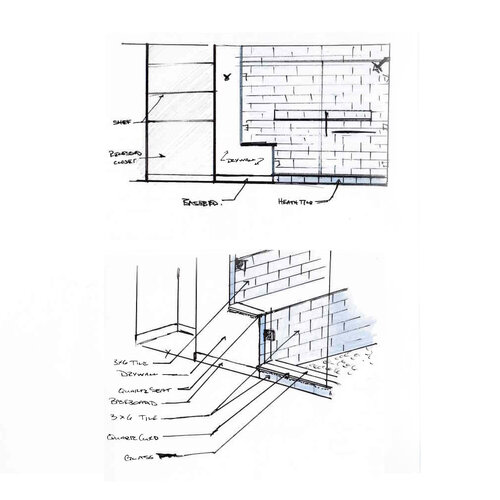 SHELF
RECESSED
CLOSET
DRYWALL
BASEBOARD
HEATH TILE
3x6 TILE
DRYWALL
QUARTZ SEAT
BASEBOARD
3 x 6 TILE
QUARTZ CURB
GLASS